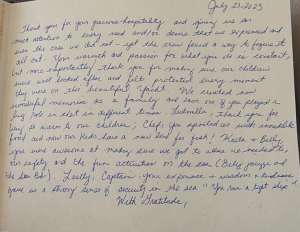 July 21 2023
Thank you for your generous hospitality and giving us
most attention to every need and/or desire that we expressed and
even the ones we did not - yet the crew found a way to figure it
all out. Your warmth and passion for what you do is evident,
but more importantly thank you for making sure our children
were well looked after and felt protected every moment
they were on this beautiful yacht. We created new
wonderful memories as a family and each one of you played a
big role in it at different times. thank you for
being so warm to our children; Chef, you spoiled us with incredible
food and now our kids have a new love for fresh! + Bill,
you were awesome at making sure we got to where we needed to,
our safety and the fun activities on the sea
the Sea Bob). Lastly, Captain, your experience + wisdom + kindness
gave us a strong sense of security in the sea "You run a tight ship".
With Gratitude,